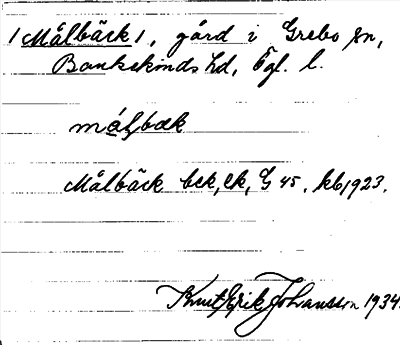 /Målbäck/, gård i Grebo sn,
Bankekinds hd, Ögl. l.
målbæk
Målbäck bek, ek, G 45. kb 1923.
Knut Erik Johansson 1934.